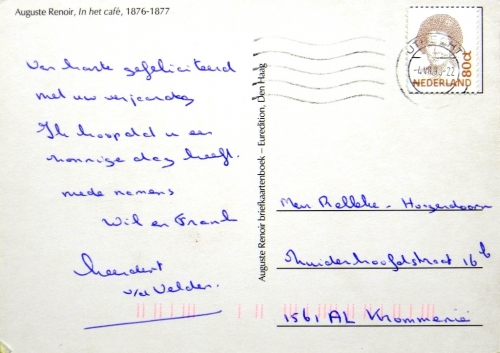 Auguste Renoir, In het café, 1876-1877
Van harte gefeliciteerd
met uw verjaardag
Ik hoop dat u een
zonnige dag heeft.
mede namens
Wil en Frank
v/d Velden.
Auguste Renoir briefkaartenboek – Euredition, Den Haag
80c
NEDERLAND
Mevr Relleke - Hogendoorn
16b
1561 AL Krommenie